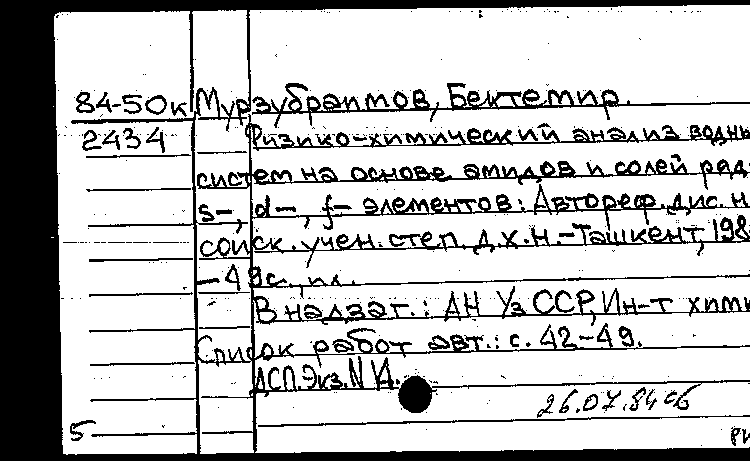 84-50к Мурзубраимов, Бектемир.
2434 Физико-химический анализ водны
систем на основе амидов и солей ряда
s-, d-, f- элементов: Автореф. дис. н
соиск. учен. степ. д.х.н. - Ташкент, 198
- 49с., ил.
В надзаг.: АН УзССР, Ин-т хими
Список работ авт.: с. 42-49.
ДСП. Экз. N
26.07.84
5